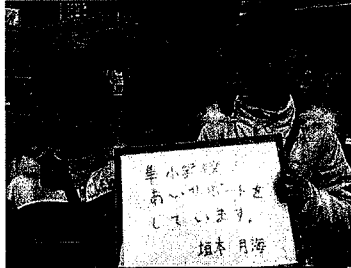 小学校
あいサポートを
しています。
垣本 月海